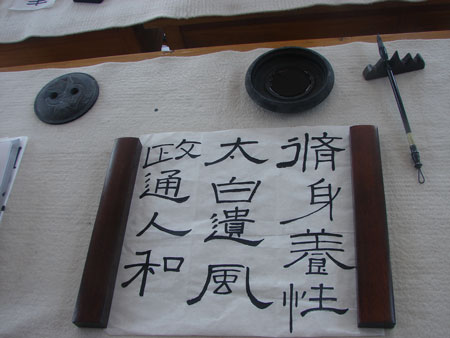 脩身養性
太白遺風
政通人和